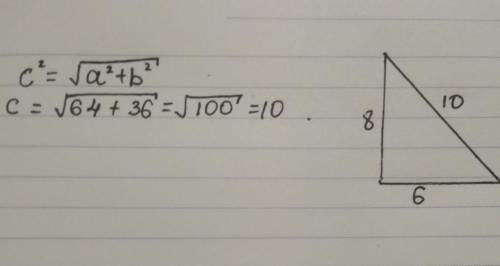 c² = √a²+b²
c = √64+36 = √100 = 10 .
8
10
6